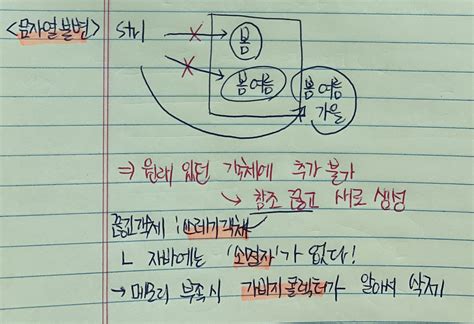 <문자열불변> str1
봄
봄여름
봄여름
가을
⇒ 원래 있던 객체에 추가 불가
↳ 참조 끊고 새로 생성
끊긴객체 : 쓰레기객체
ㄴ 자바에는 '소멸자'가 없다!
→ 메모리 부족시 가비지콜렉터가 알아서 삭제